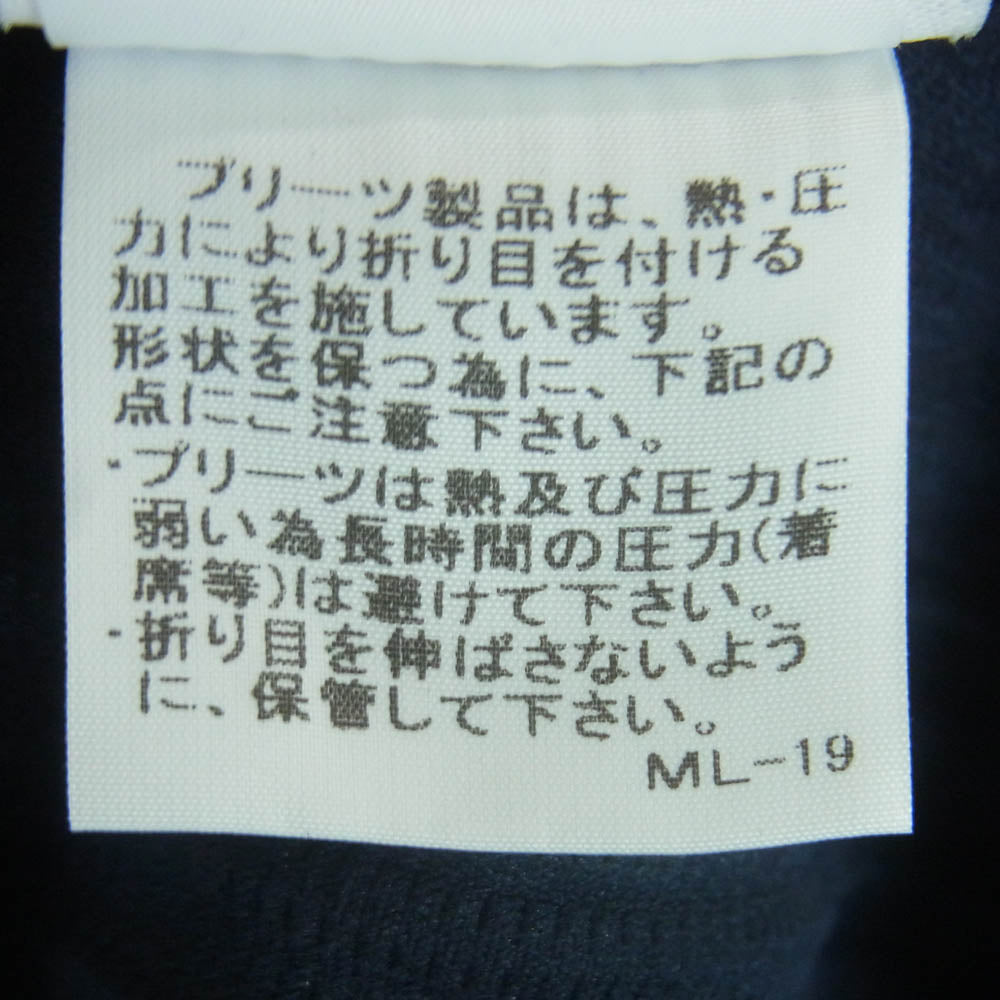 プリーツ製品は、熱・圧
力により折り目を付ける
加工を施しています。
形状を保つ為に、下記の
点にご注意下さい。
・プリーツは熱及び圧力に
弱い為長時間の圧力(着
席等)は避けて下さい。
・折り目を伸ばさないよう
に、保管して下さい。
ML-19